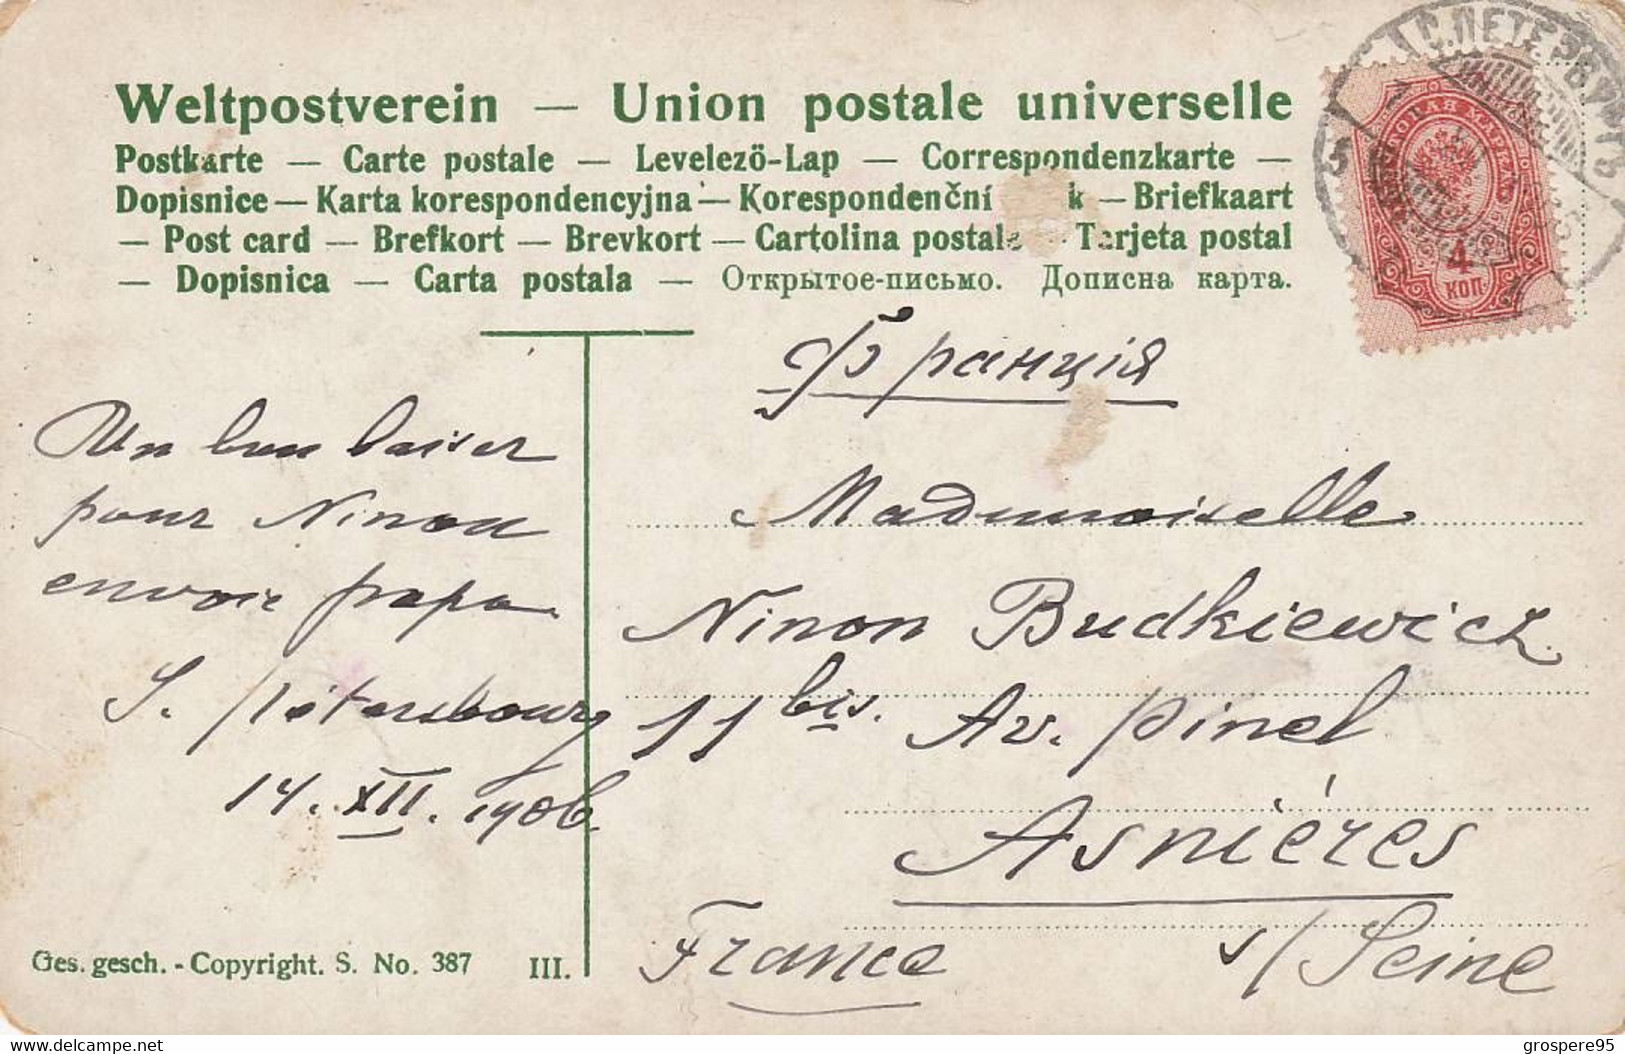 Weltpostverein — Union postale universelle
Postkarte — Carte postale — Levelező-Lap — Correspondenzkarte —
Dopisnice — Karta korespondencyjna — Korespondenční k — Briefkaart
— Post card — Brefkort — Brevkort — Cartolina postale Tarjeta postal
— Dopisnica — Carta postala — Открытое-письмо. Дописна карта.
С.ПЕТЕРБУРГЪ
4
КОП.
Франція
Un bon baiser
pour Ninon
envoie papa
S. Pétersbourg
14. XII. 1906.
Mademoiselle
Ninon Budkiewicz
11 bis. Av. Pinel
Asnières
France s/Seine
Ges. gesch. - Copyright. S. No. 387 III.
delcampe.net
grospere95